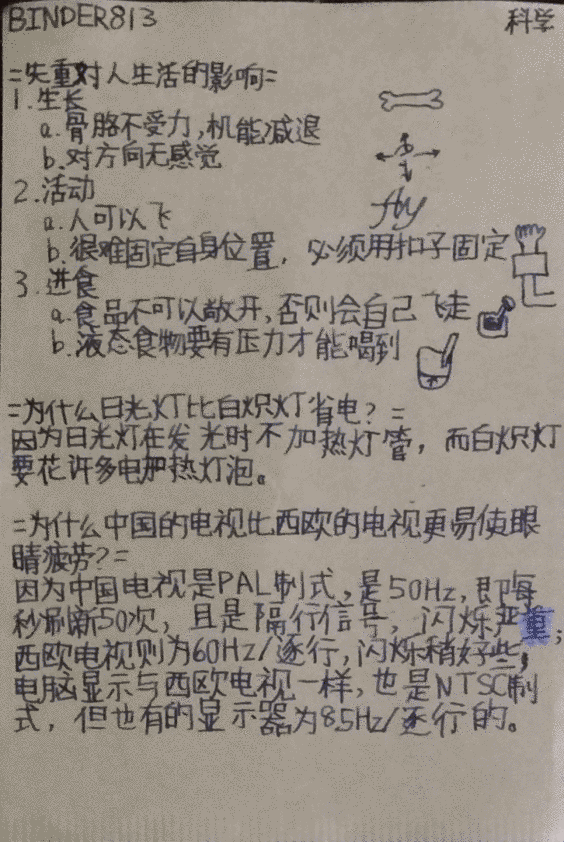 BINDER813 科学
=失重对人生活的影响=
1.生长
a.骨骼不受力,机能减退
b.对方向无感觉
2.活动
a.人可以飞
fly
b.很难固定自身位置，必须用扣子固定
3.进食
a.食品不可以敞开,否则会自己飞走
b.液态食物要有压力才能喝到
=为什么日光灯比白炽灯省电？=
因为日光灯在发光时不加热灯管，而白炽灯
要花许多电加热灯泡。
=为什么中国的电视比西欧的电视更易使眼
睛疲劳?=
因为中国电视是PAL制式,是50Hz,即每
秒刷新50次，且是隔行信号，闪烁严重;
西欧电视则为60Hz/逐行,闪烁稍好些,
电脑显示与西欧电视一样,也是NTSC制
式，但也有的显示器为85Hz/逐行的。